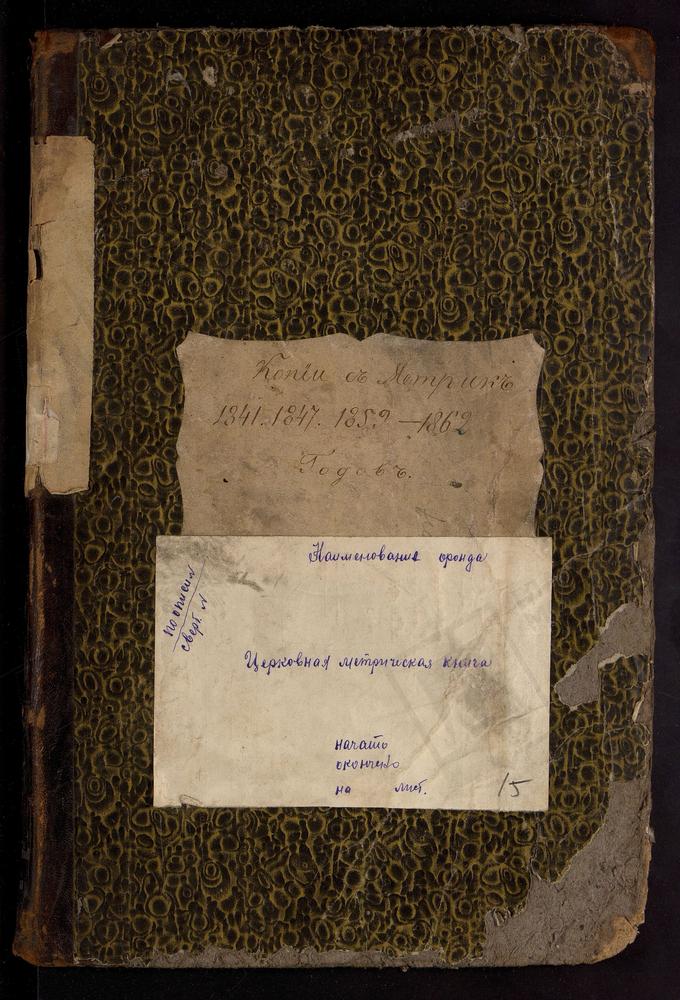 Копіи съ Метрикъ
1841. 1847. 1859 — 1862
Годовъ.
Наименование фонда
по описи №
связ. №
Церковная метрическая книга
начато
окончено
на лист.
15